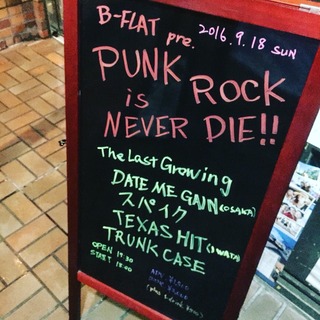 B-FLAT pre. 2016.9.18 SUN
PUNK ROCK
is
NEVER DIE!!
The Last Growing
DATE ME GAIN (OSAKA)
スパイク
TEXAS HIT (IWATA)
TRUNK CASE
OPEN
START
(plus 1 drink